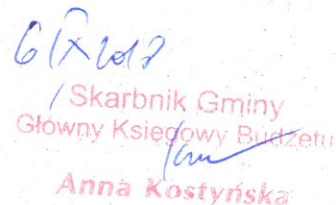 6 IX 2017
Skarbnik Gminy
Główny Księgowy Budżetu
Anna Kostyńska